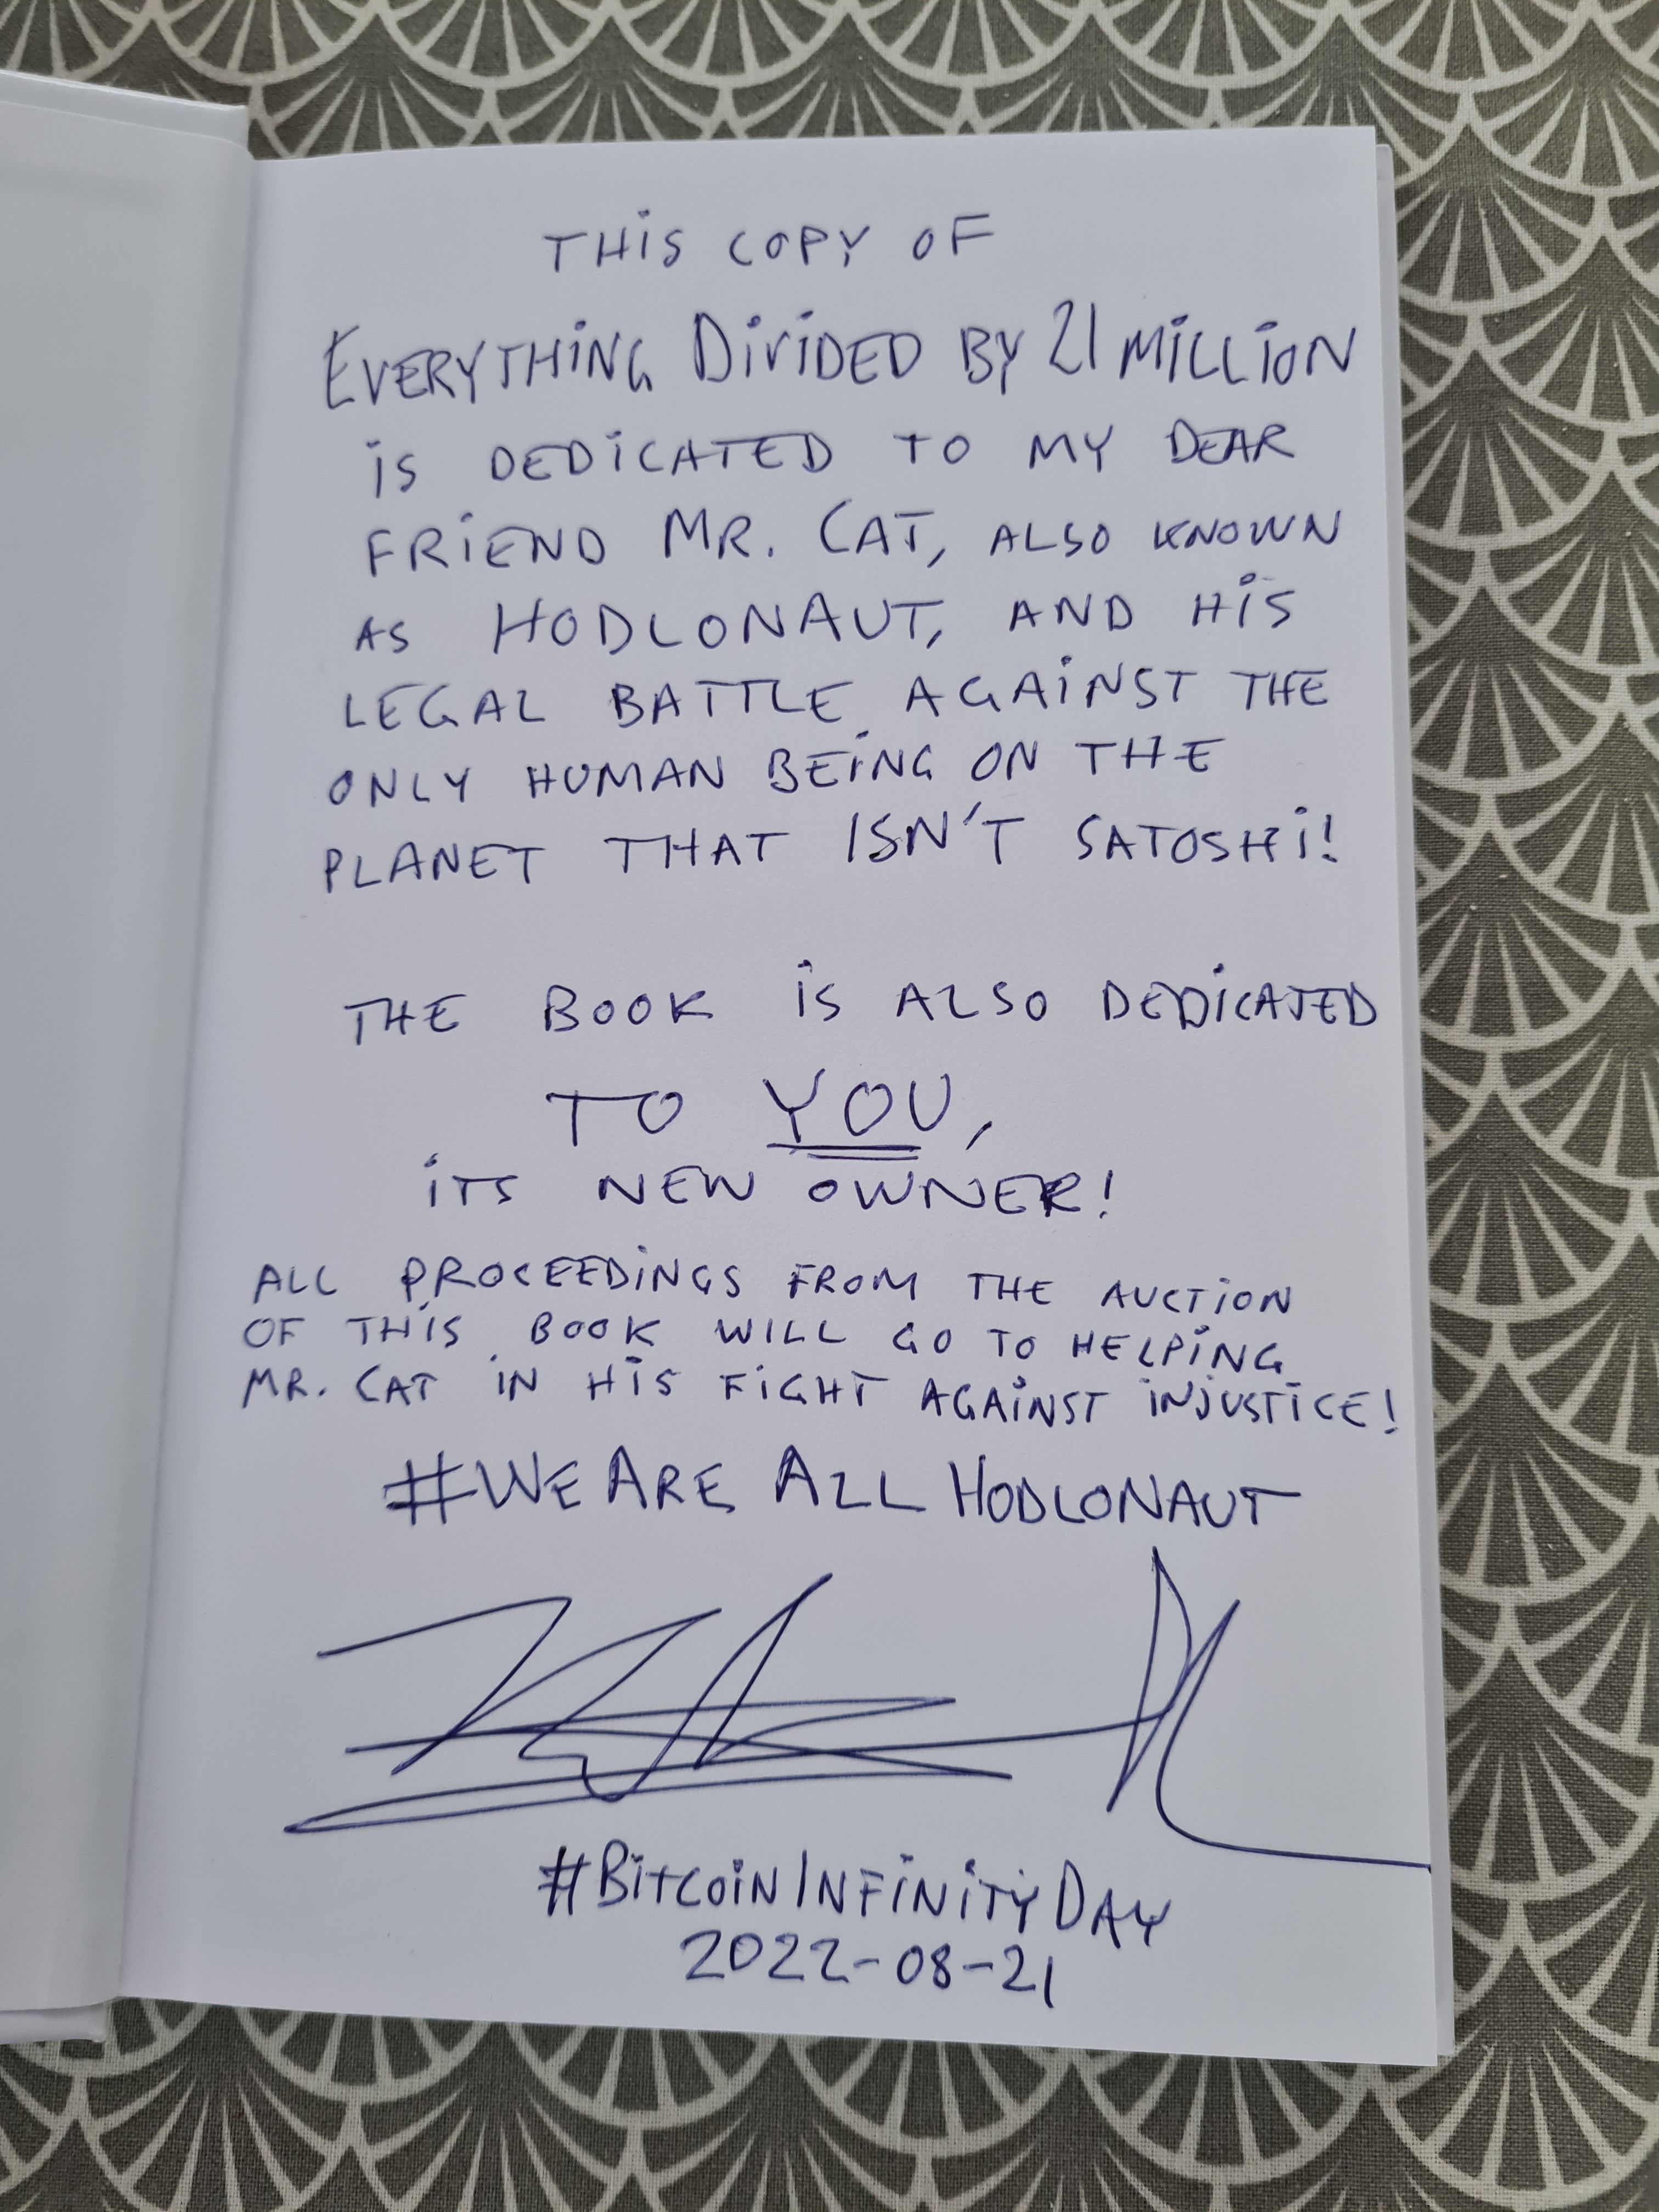 THIS COPY OF
EVERYTHING DIVIDED BY 21 MILLION
IS DEDICATED TO MY DEAR
FRIEND MR. CAT, ALSO KNOWN
AS HODLONAUT, AND HIS
LEGAL BATTLE AGAINST THE
ONLY HUMAN BEING ON THE
PLANET THAT ISN'T SATOSHI!
THE BOOK IS ALSO DEDICATED
TO YOU,
ITS NEW OWNER!
ALL PROCEEDINGS FROM THE AUCTION
OF THIS BOOK WILL GO TO HELPING
MR. CAT IN HIS FIGHT AGAINST INJUSTICE!
#WEARE ALL HODLONAUT
#BITCOININFINITYDAY
2022-08-21